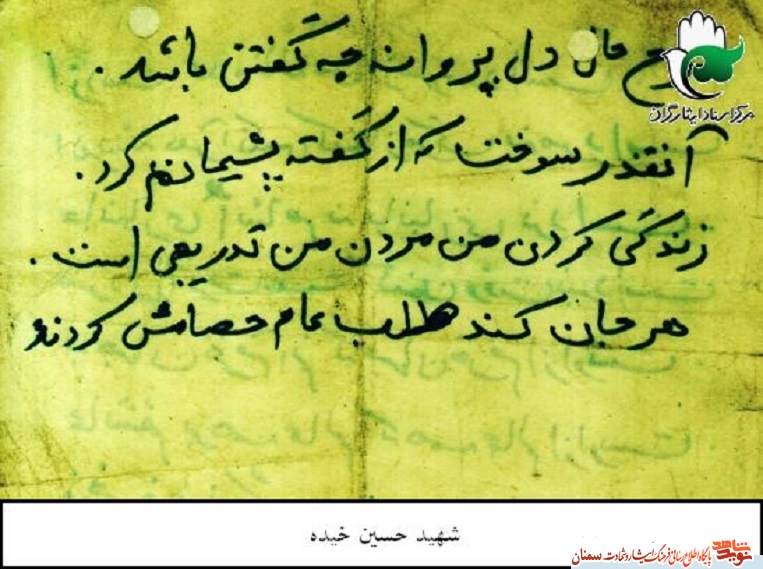 دل پروانه چه گفتن باشد.
آنقدر سوخت که از گفته پشیمانم کرد.
زندگی کردن من مردن من تدریجی است.
هر جان کند طلب عام حسابش کردند
مرکز اسناد ایثارگران
شهید حسین خیده
نوید شاهد
پایگاه اطلاع رسانی فرهنگ ایثار و شهادت سمنان